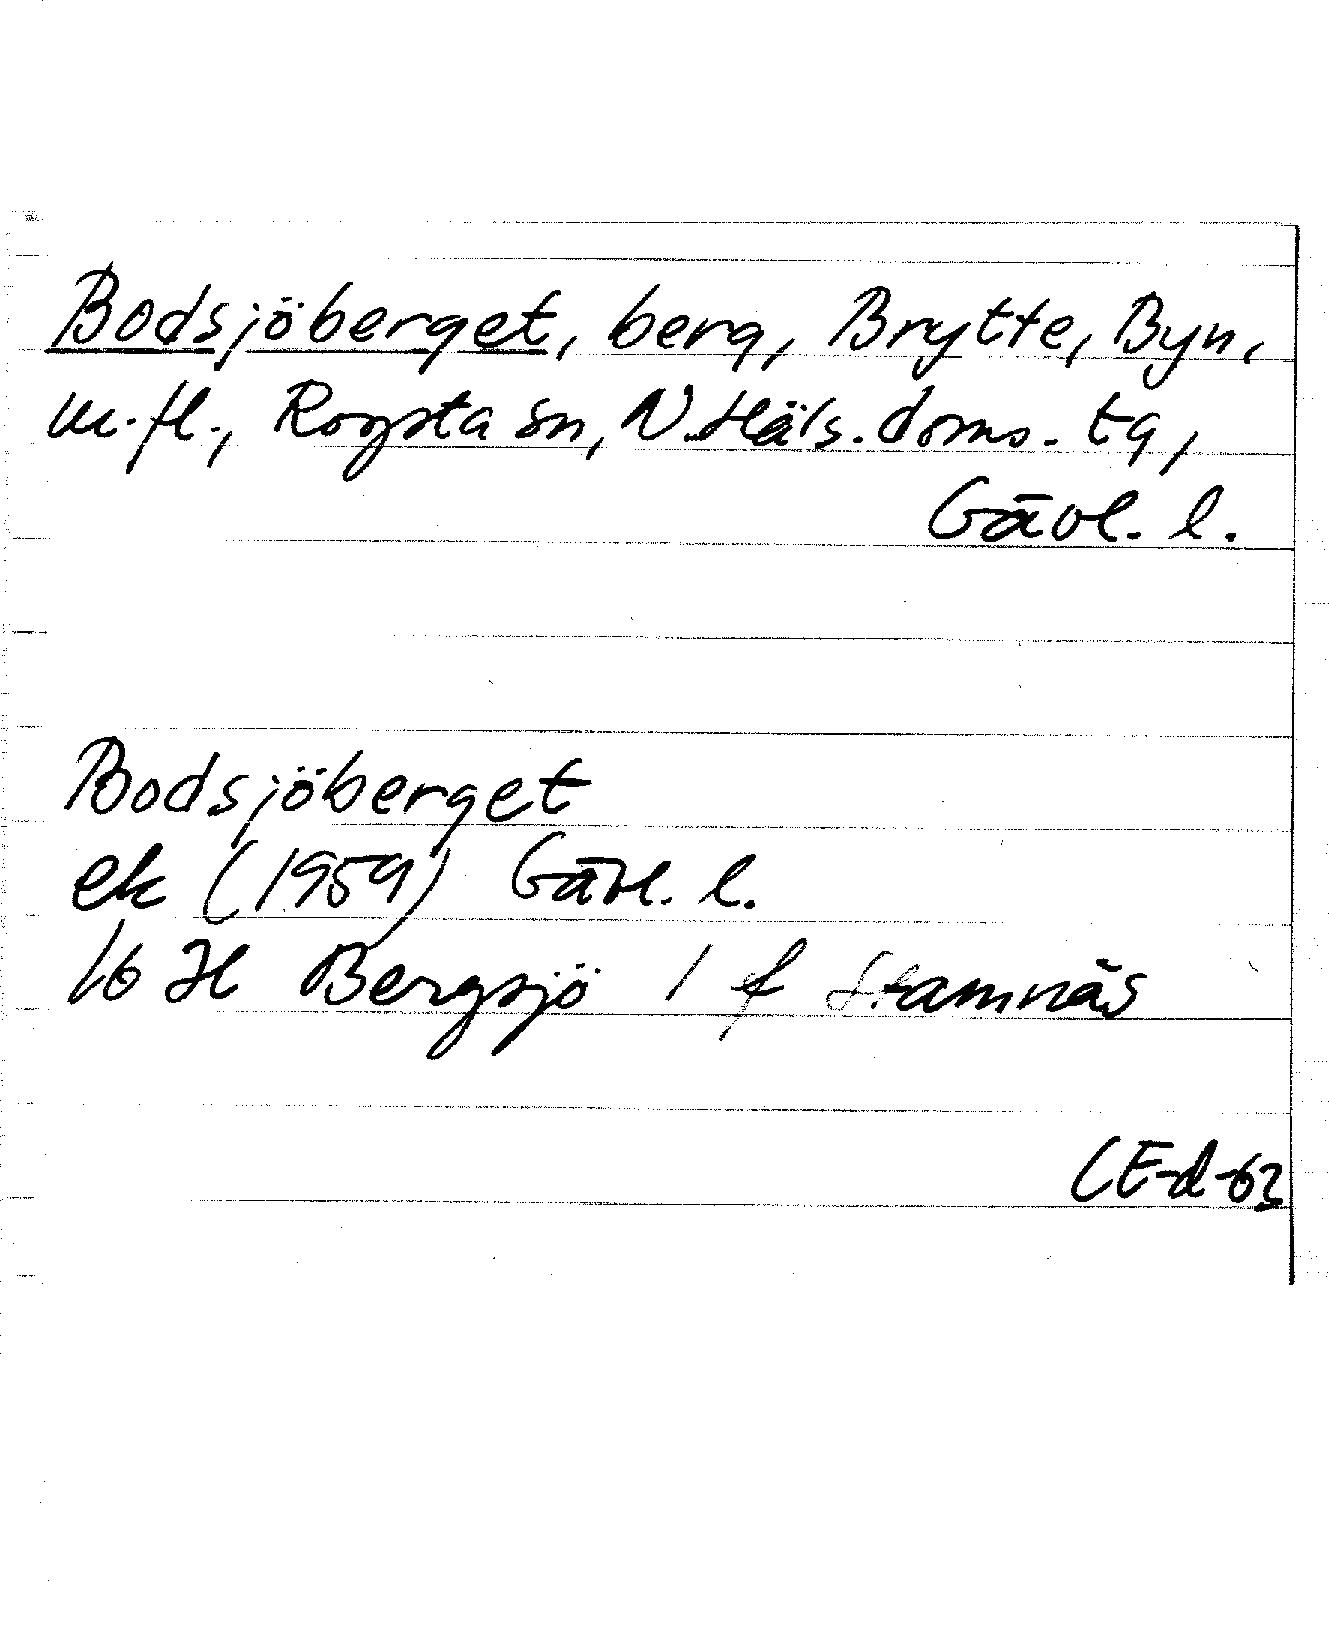 Bodsjöberget, berg, Brytte, Byn,
m. fl., Rogsta sn, N. Häls. doms. tg,
Gävl. l.
Bodsjöberget
ek (1959) Gävl. l.
16 H Bergsjö 1 f Stamnäs
CE-d-62